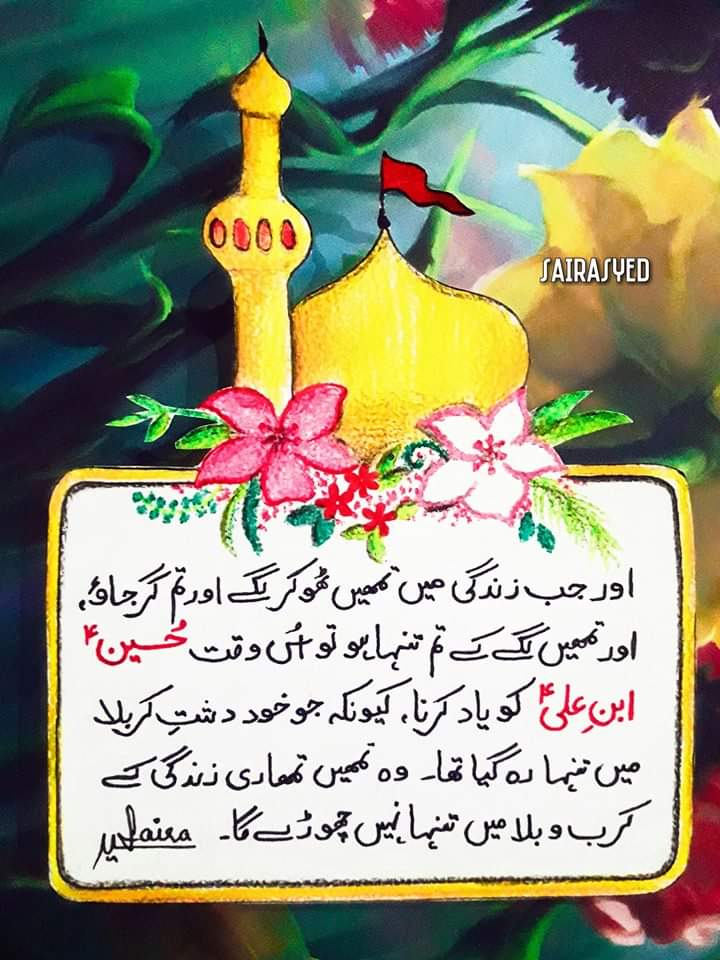 SAIRASYED
اور جب زندگی میں تمھیں ٹھوکر لگے اور تم گر جاؤ،
اور تمھیں لگے کے تم تنہا ہو تو اُس وقت حُسینؑ
ابنِ علیؑ کو یاد کرنا، کیونکہ جو خود دشتِ کربلا
میں تنہا رہ گیا تھا۔ وہ تمھیں تمھاری زندگی کے
کرب و بلا میں تنہا نہیں چھوڑے گا۔ Saira